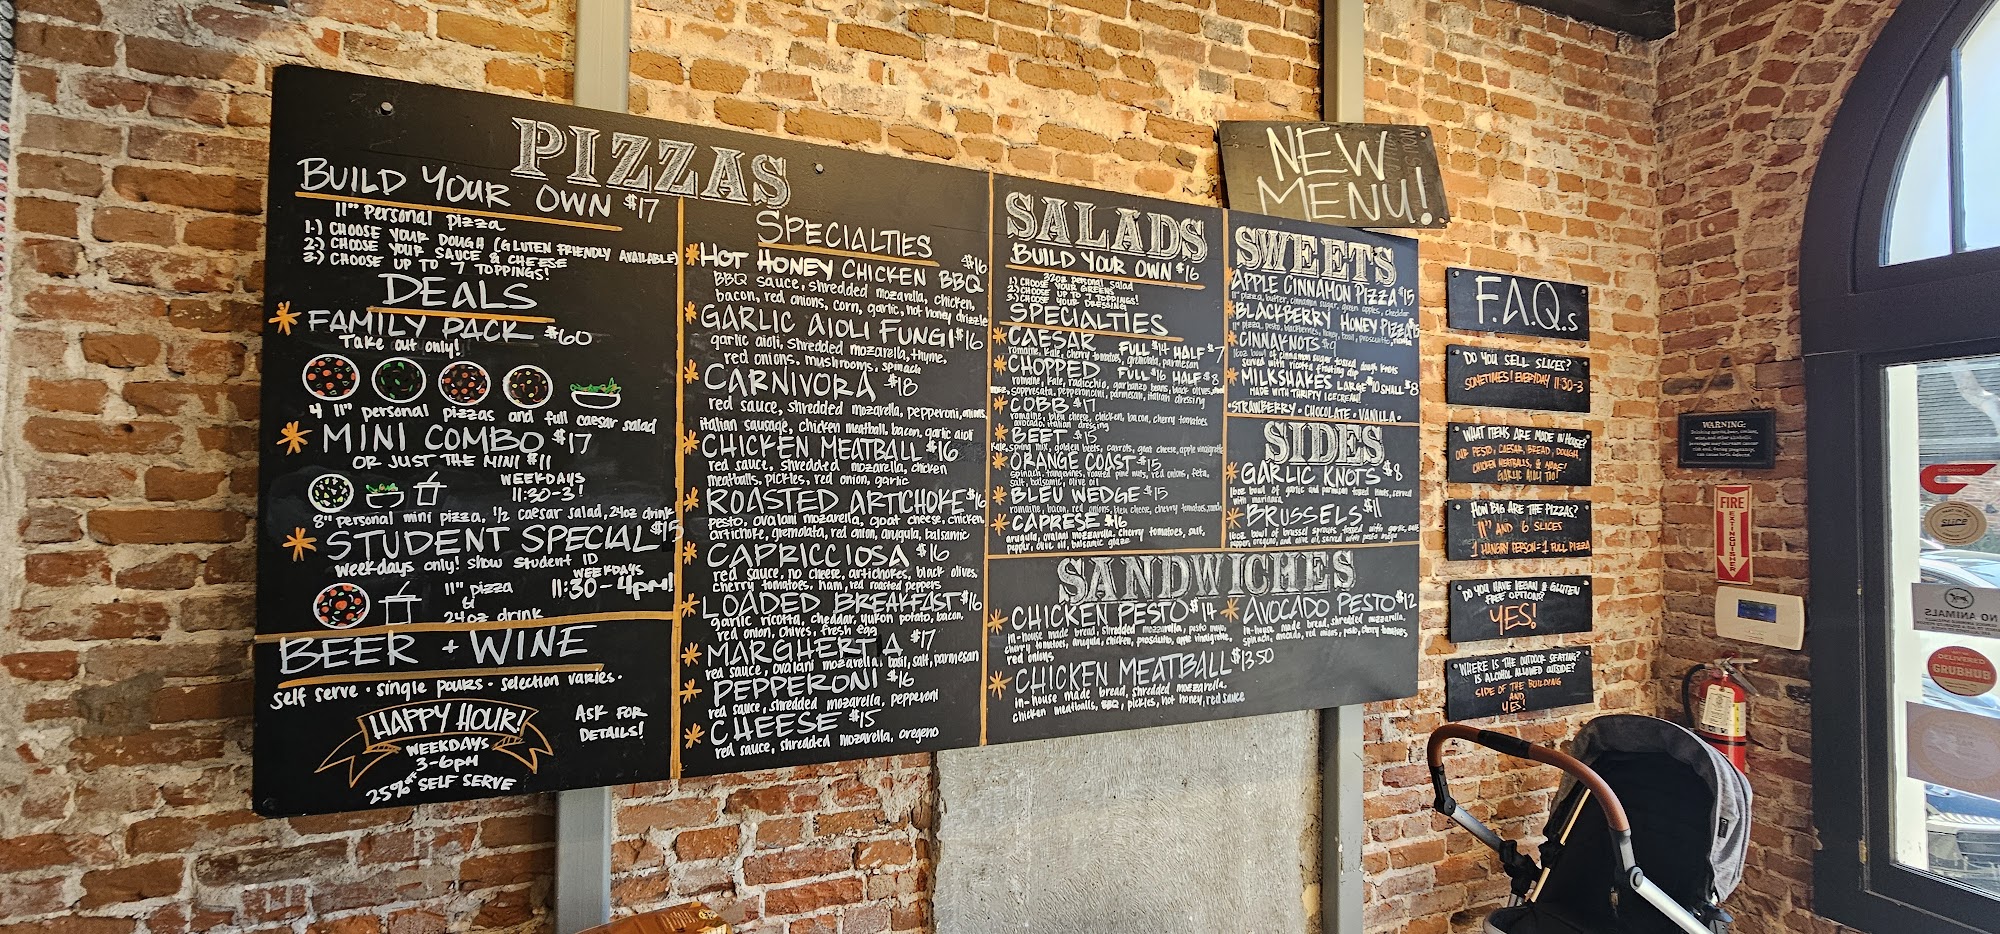 PIZZAS
BUILD YOUR OWN $17
11" Personal pizza
1.) CHOOSE YOUR DOUGH (GLUTEN FRIENDLY AVAILABLE)
2.) CHOOSE YOUR SAUCE & CHEESE
3.) CHOOSE UP TO 7 TOPPINGS!
DEALS
FAMILY PACK $60
Take out only!
4 11" personal pizzas and full caesar salad
MINI COMBO $17
OR JUST THE MINI $11
WEEKDAYS
11:30-3!
8" personal mini pizza, 1/2 caesar salad, 24oz drink
STUDENT SPECIAL $15
weekdays only! show student ID
WEEKDAYS
11:30-4pm!
11" pizza
&
24oz drink
BEER + WINE
self serve · single pours · selection varies ·
HAPPY HOUR!
WEEKDAYS
3-6pm
25% off SELF SERVE
ASK FOR
DETAILS!
SPECIALTIES
HOT HONEY CHICKEN BBQ $16
BBQ sauce, shredded mozarella, chicken,
bacon, red onions, corn, garlic, hot honey drizzle
GARLIC AIOLI FUNGI $16
garlic aioli, shredded mozarella, thyme,
red onions, mushrooms, spinach
CARNIVORA $18
red sauce, shredded mozarella, pepperoni, onions,
italian sausage, chicken meatball, bacon, garlic aioli
CHICKEN MEATBALL $16
red sauce, shredded mozarella, chicken
meatballs, pickles, red onion, garlic
ROASTED ARTICHOKE $16
pesto, ovalani mozarella, goat cheese, chicken,
artichoke, gremolata, red onion, arugula, balsamic
CAPRICCIOSA $16
red sauce, no cheese, artichokes, black olives,
cherry tomatoes, ham, red roasted peppers
LOADED BREAKFAST $16
garlic ricotta, cheddar, yukon potato, bacon,
red onion, chives, fresh egg
MARGHERITA $17
red sauce, ovalani mozarella, basil, salt, parmesan
PEPPERONI $16
red sauce, shredded mozarella, pepperoni
CHEESE $15
red sauce, shredded mozarella, oregeno
SALADS
BUILD YOUR OWN $16
32oz personal salad
1.) CHOOSE YOUR GREENS
2.) CHOOSE UP TO 7 TOPPINGS!
3.) CHOOSE YOUR DRESSING
SPECIALTIES
CAESAR FULL $14 HALF $7
romaine, kale, cherry tomatoes, gremolata, parmesan
CHOPPED FULL $16 HALF $8
romaine, kale, radicchio, garbanzo beans, black olives,
sopressata, pepperoncini, parmesan, italian dressing
COBB $17
romaine, bleu cheese, chicken, bacon, cherry tomatoes,
avocado, italian dressing
BEET $15
kale, spring mix, golden beets, carrots, goat cheese, apple vinaigrette
ORANGE COAST $15
spinach, tangarines, roasted pine nuts, red onions, feta,
salt, balsamic, olive oil
BLEU WEDGE $15
romaine, bacon, red onions, bleu cheese, cherry tomatoes, ranch
CAPRESE $16
arugula, ovalani mozzarella, cherry tomatoes, salt,
pepper, olive oil, balsamic glaze
SWEETS
APPLE CINNAMON PIZZA $15
11" pizza, butter, cinnamon sugar, green apples, cheddar
BLACKBERRY HONEY PIZZA $15
11" pizza, pesto, blackberries, honey, basil, prosciutto, ricotta
CINNAKNOTS $9
16oz bowl of cinnamon sugar tossed dough knots
served with ricotta frosting dip
MILKSHAKES LARGE $10 SMALL $8
MADE WITH THRIFTY ICECREAM!
·STRAWBERRY · CHOCOLATE · VANILLA ·
SIDES
GARLIC KNOTS $8
16oz bowl of garlic and parmesan tossed knots, served
with marinara
BRUSSELS $11
16oz bowl of brussel sprouts tossed with garlic, salt,
pepper, oregano, and olive oil, served with pesto mayo
SANDWICHES
CHICKEN PESTO $14
in-house made bread, shredded mozzarella, pesto mayo,
cherry tomatoes, arugula, chicken, prosciutto, apple vinaigrette,
red onions
AVOCADO PESTO $12
in-house made bread, shredded mozzarella,
spinach, avocado, red onions, pesto, cherry tomatoes
CHICKEN MEATBALL $13.50
in-house made bread, shredded mozzarella,
chicken meatballs, BBQ, pickles, hot honey, red sauce
NEW
MENU!
F.A.Q.s
DO YOU SELL SLICES?
SOMETIMES! EVERYDAY 11:30-3
WHAT ITEMS ARE MADE IN HOUSE?
OUR PESTO, CAESAR, BREAD, DOUGH,
CHICKEN MEATBALLS, & MORE!
GARLIC AIOLI TOO!
HOW BIG ARE THE PIZZAS?
11" AND 6 SLICES
1 HANGRY PERSON = 1 FULL PIZZA
DO YOU HAVE VEGAN & GLUTEN
FREE OPTIONS?
YES!
WHERE IS THE OUTDOOR SEATING?
IS ALCOHOL ALLOWED OUTSIDE?
SIDE OF THE BUILDING
AND
YES!
WARNING:
FIRE
EXTINGUISHER
SLICE
NO ANIMALS
DELIVERED
GRUBHUB